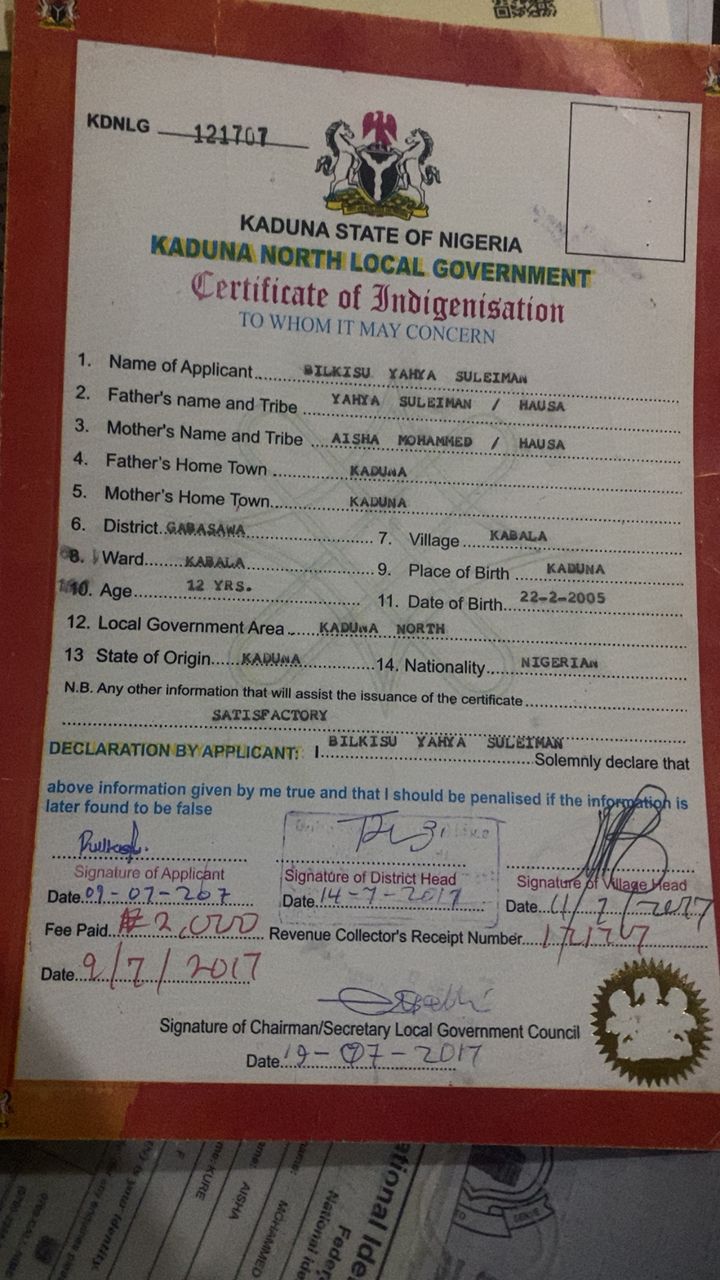 KDNLG 121707
KADUNA STATE OF NIGERIA
KADUNA NORTH LOCAL GOVERNMENT
Certificate of Indigenisation
TO WHOM IT MAY CONCERN
1. Name of Applicant BILKISU YAHYA SULEIMAN
2. Father's name and Tribe YAHYA SULEIMAN / HAUSA
3. Mother's Name and Tribe AISHA MOHAMMED / HAUSA
4. Father's Home Town KADUNA
5. Mother's Home Town KADUNA
6. District GABASAWA 7. Village KABALA
8. Ward KABALA 9. Place of Birth KADUNA
10. Age 12 YRS. 11. Date of Birth 22-2-2005
12. Local Government Area KADUNA NORTH
13 State of Origin KADUNA 14. Nationality NIGERIAN
N.B. Any other information that will assist the issuance of the certificate
SATISFACTORY
DECLARATION BY APPLICANT: I BILKISU YAHYA SULEIMAN Solemnly declare that
above information given by me true and that I should be penalised if the information is
later found to be false
Signature of Applicant Signature of District Head Signature of Village Head
Date 09-07-207 Date 14-7-2017 Date 11/7/2017
Fee Paid ₦2,000 Revenue Collector's Receipt Number 121707
Date 9/7/2017
Signature of Chairman/Secretary Local Government Council
Date 19-07-2017
ational Ide
Feder
National Ide
MOHAMMED
AISHA
me: KURE
F
your identity